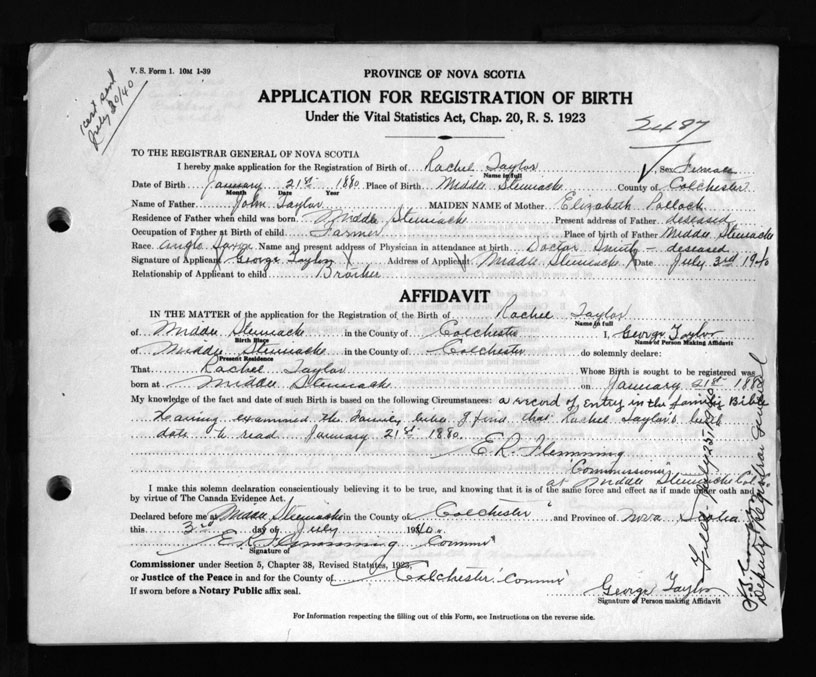 V. S. Form 1. 10M 1-39
Cert sent
July 30/40
PROVINCE OF NOVA SCOTIA
APPLICATION FOR REGISTRATION OF BIRTH
Under the Vital Statistics Act, Chap. 20, R. S. 1923
2487
TO THE REGISTRAR GENERAL OF NOVA SCOTIA
I hereby make application for the Registration of Birth of Rachel Taylor Sex Female
Name in full
Date of Birth January 21st 1880 Place of Birth Middle Stewiacke County of Colchester
Month Date Year
Name of Father John Taylor MAIDEN NAME of Mother Elizabeth Pollock
Residence of Father when child was born Middle Stewiacke Present address of Father deseased
Occupation of Father at Birth of child Farmer Place of birth of Father Middle Stewiacke
Race Anglo Saxon Name and present address of Physician in attendance at birth Doctor Smith - deseased
Signature of Applicant X George Taylor X Address of Applicant Middle Stewiacke Date July 3rd 1940
Relationship of Applicant to child Brother
AFFIDAVIT
IN THE MATTER of the application for the Registration of the Birth of Rachel Taylor
Name in full
of Middle Stewiacke in the County of Colchester I, George Taylor
Birth Place Name of Person Making Affidavit
of Middle Stewiacke in the County of Colchester do solemnly declare:
Present Residence
That Rachel Taylor Whose Birth is sought to be registered was
born at Middle Stewiacke on January 21st 1880
My knowledge of the fact and date of such Birth is based on the following Circumstances: a record of entry in the family Bible
Having examined the Family bible I find that Rachel Taylor's birth
date to read January 21st 1880
E.R. Flemming
Commissioner
at Middle Stewiacke Col.
I make this solemn declaration conscientiously believing it to be true, and knowing that it is of the same force and effect as if made under oath and
by virtue of The Canada Evidence Act.
Declared before me at Middle Stewiacke in the County of Colchester and Province of Nova Scotia
this 3rd day of July 1940.
E.R. Flemming Commr
Signature of
Commissioner under Section 5, Chapter 38, Revised Statutes, 1923,
or Justice of the Peace in and for the County of Colchester Commr
If sworn before a Notary Public affix seal.
George Taylor
Signature of Person making Affidavit
For Information respecting the filling out of this Form, see Instructions on the reverse side.
Filed July 25, 1940
Deputy Registrar General